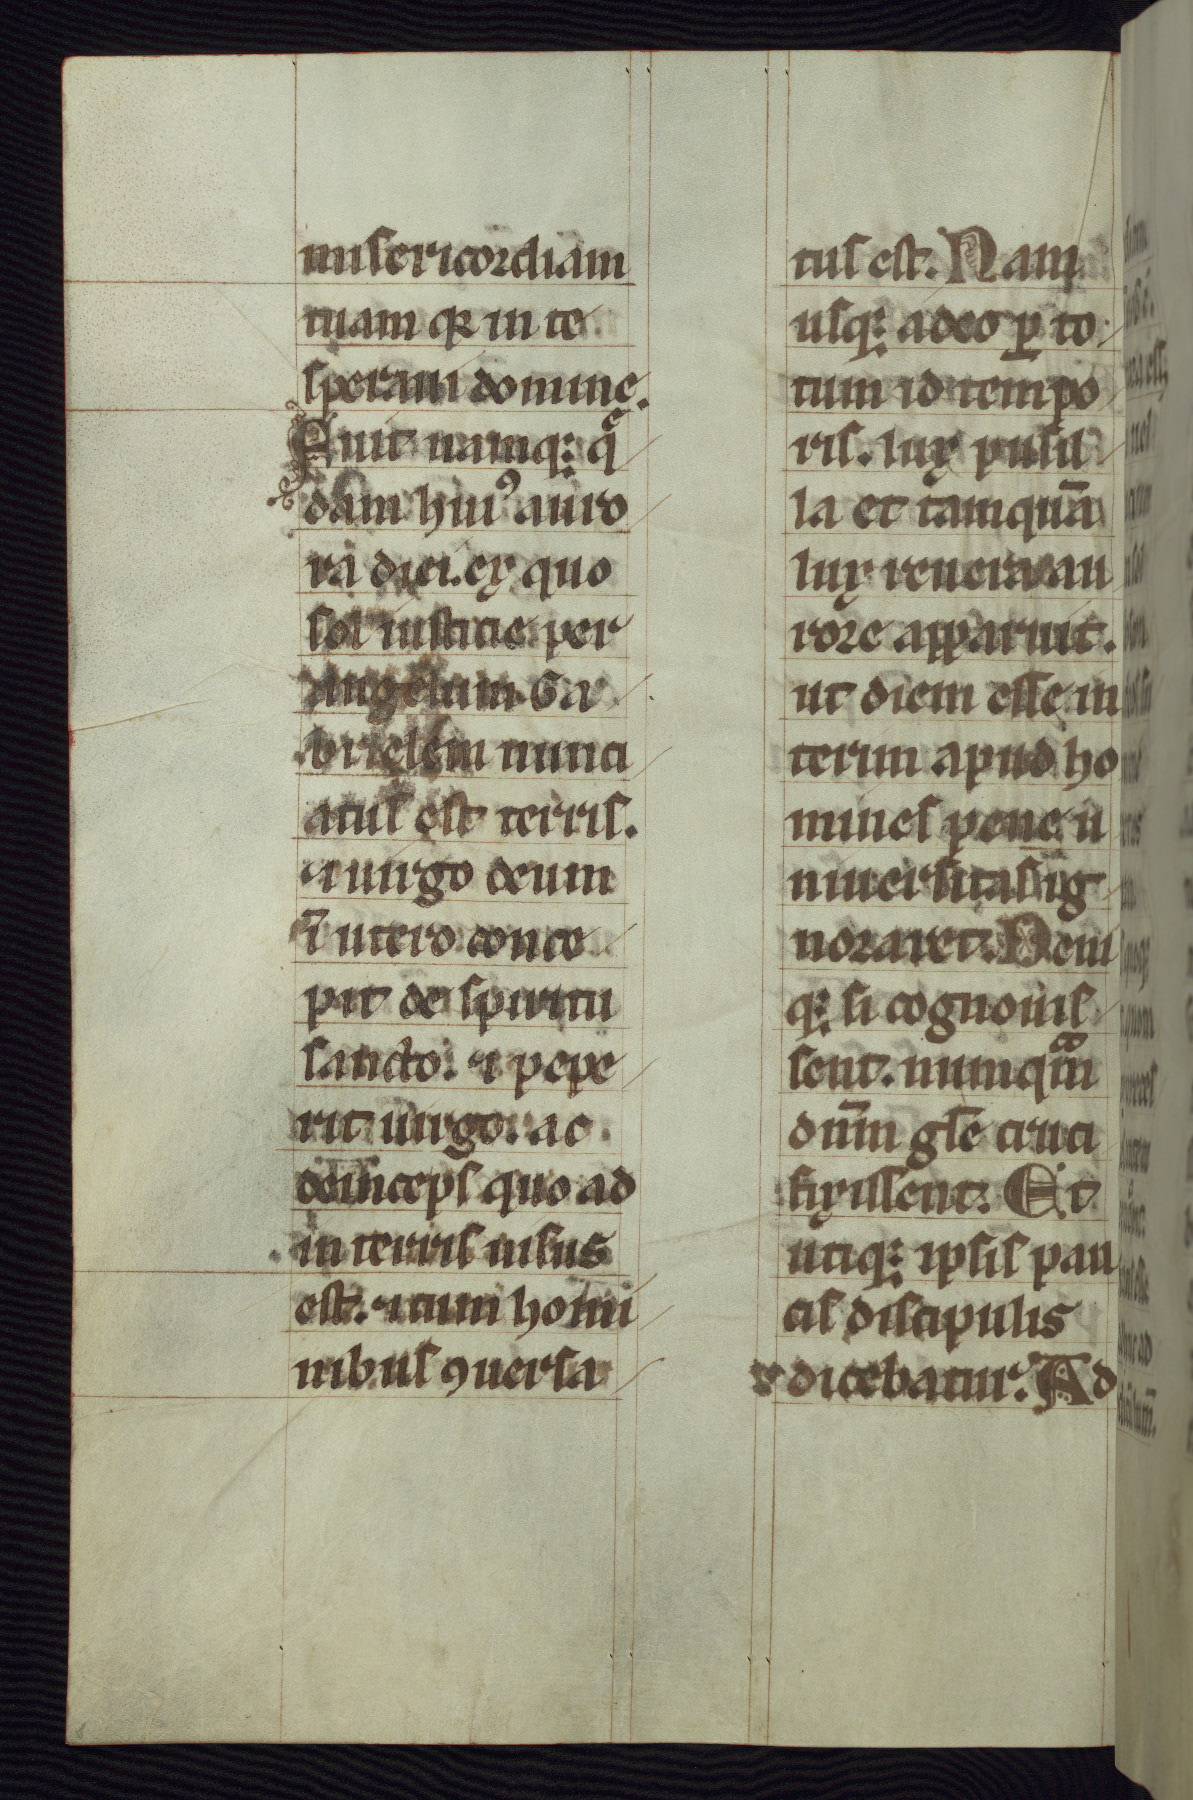 misericordiam
tuam qr in te
speraui domine.
Fuit namq; qͤ
dam hui᷒ auro
ra diei. ex quo
sol iusticie per
angelum Ga
brielem nunci
atus est terris.
⁊ uirgo deum
ī utero conce
pit de spiritu
sancto. ⁊ pepe
rit uirgo. ac
deinceps quo ad
in terris uisus
est. ⁊ cum homi
nibus ꝯuersa
tus est. Nam
usq; adeo ꝑ to
tum id tempo
ris. lux pusil
la et tamquā
lux reuera au
rore apparuit.
ut diem esse in
terim apud ho
mines pene u
niuersitas ig
noraret. Deni
q; si cognouis
sent. numqᷓm
dn̄m gl̄e cruci
fixissent. Et
utiq; ipsis pau
cis discipulis
dicebatur. Ad